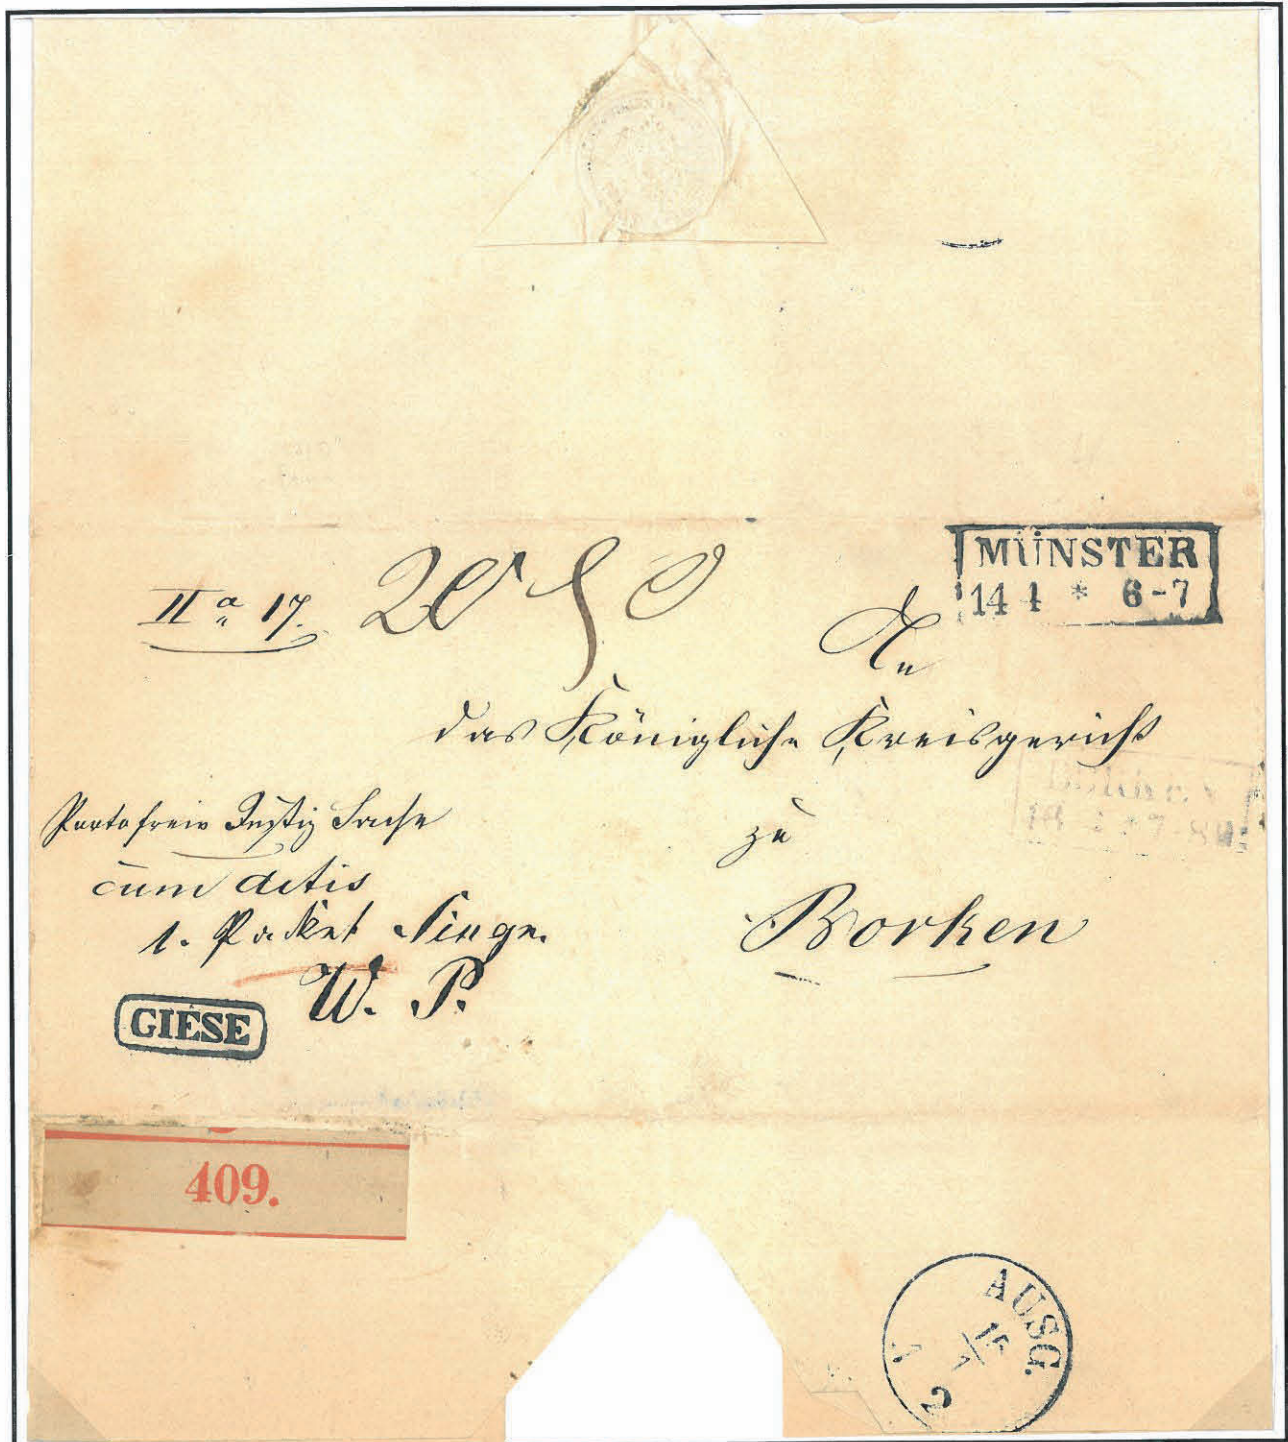 MÜNSTER
14 1 * 6-7
II a 17.
An
das Königliche Kreisgericht
zu
Borken
Portofreie Justiz Sache
cum actis
1. Packet Sign.
W. P.
GIESE
409.
AUSG.
15
1
2